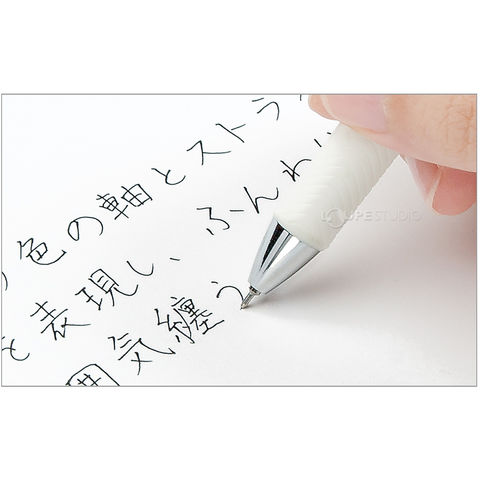 色の軸とストラ
を表現し、ふんわ
囲気纏う
LOUPE STUDIO